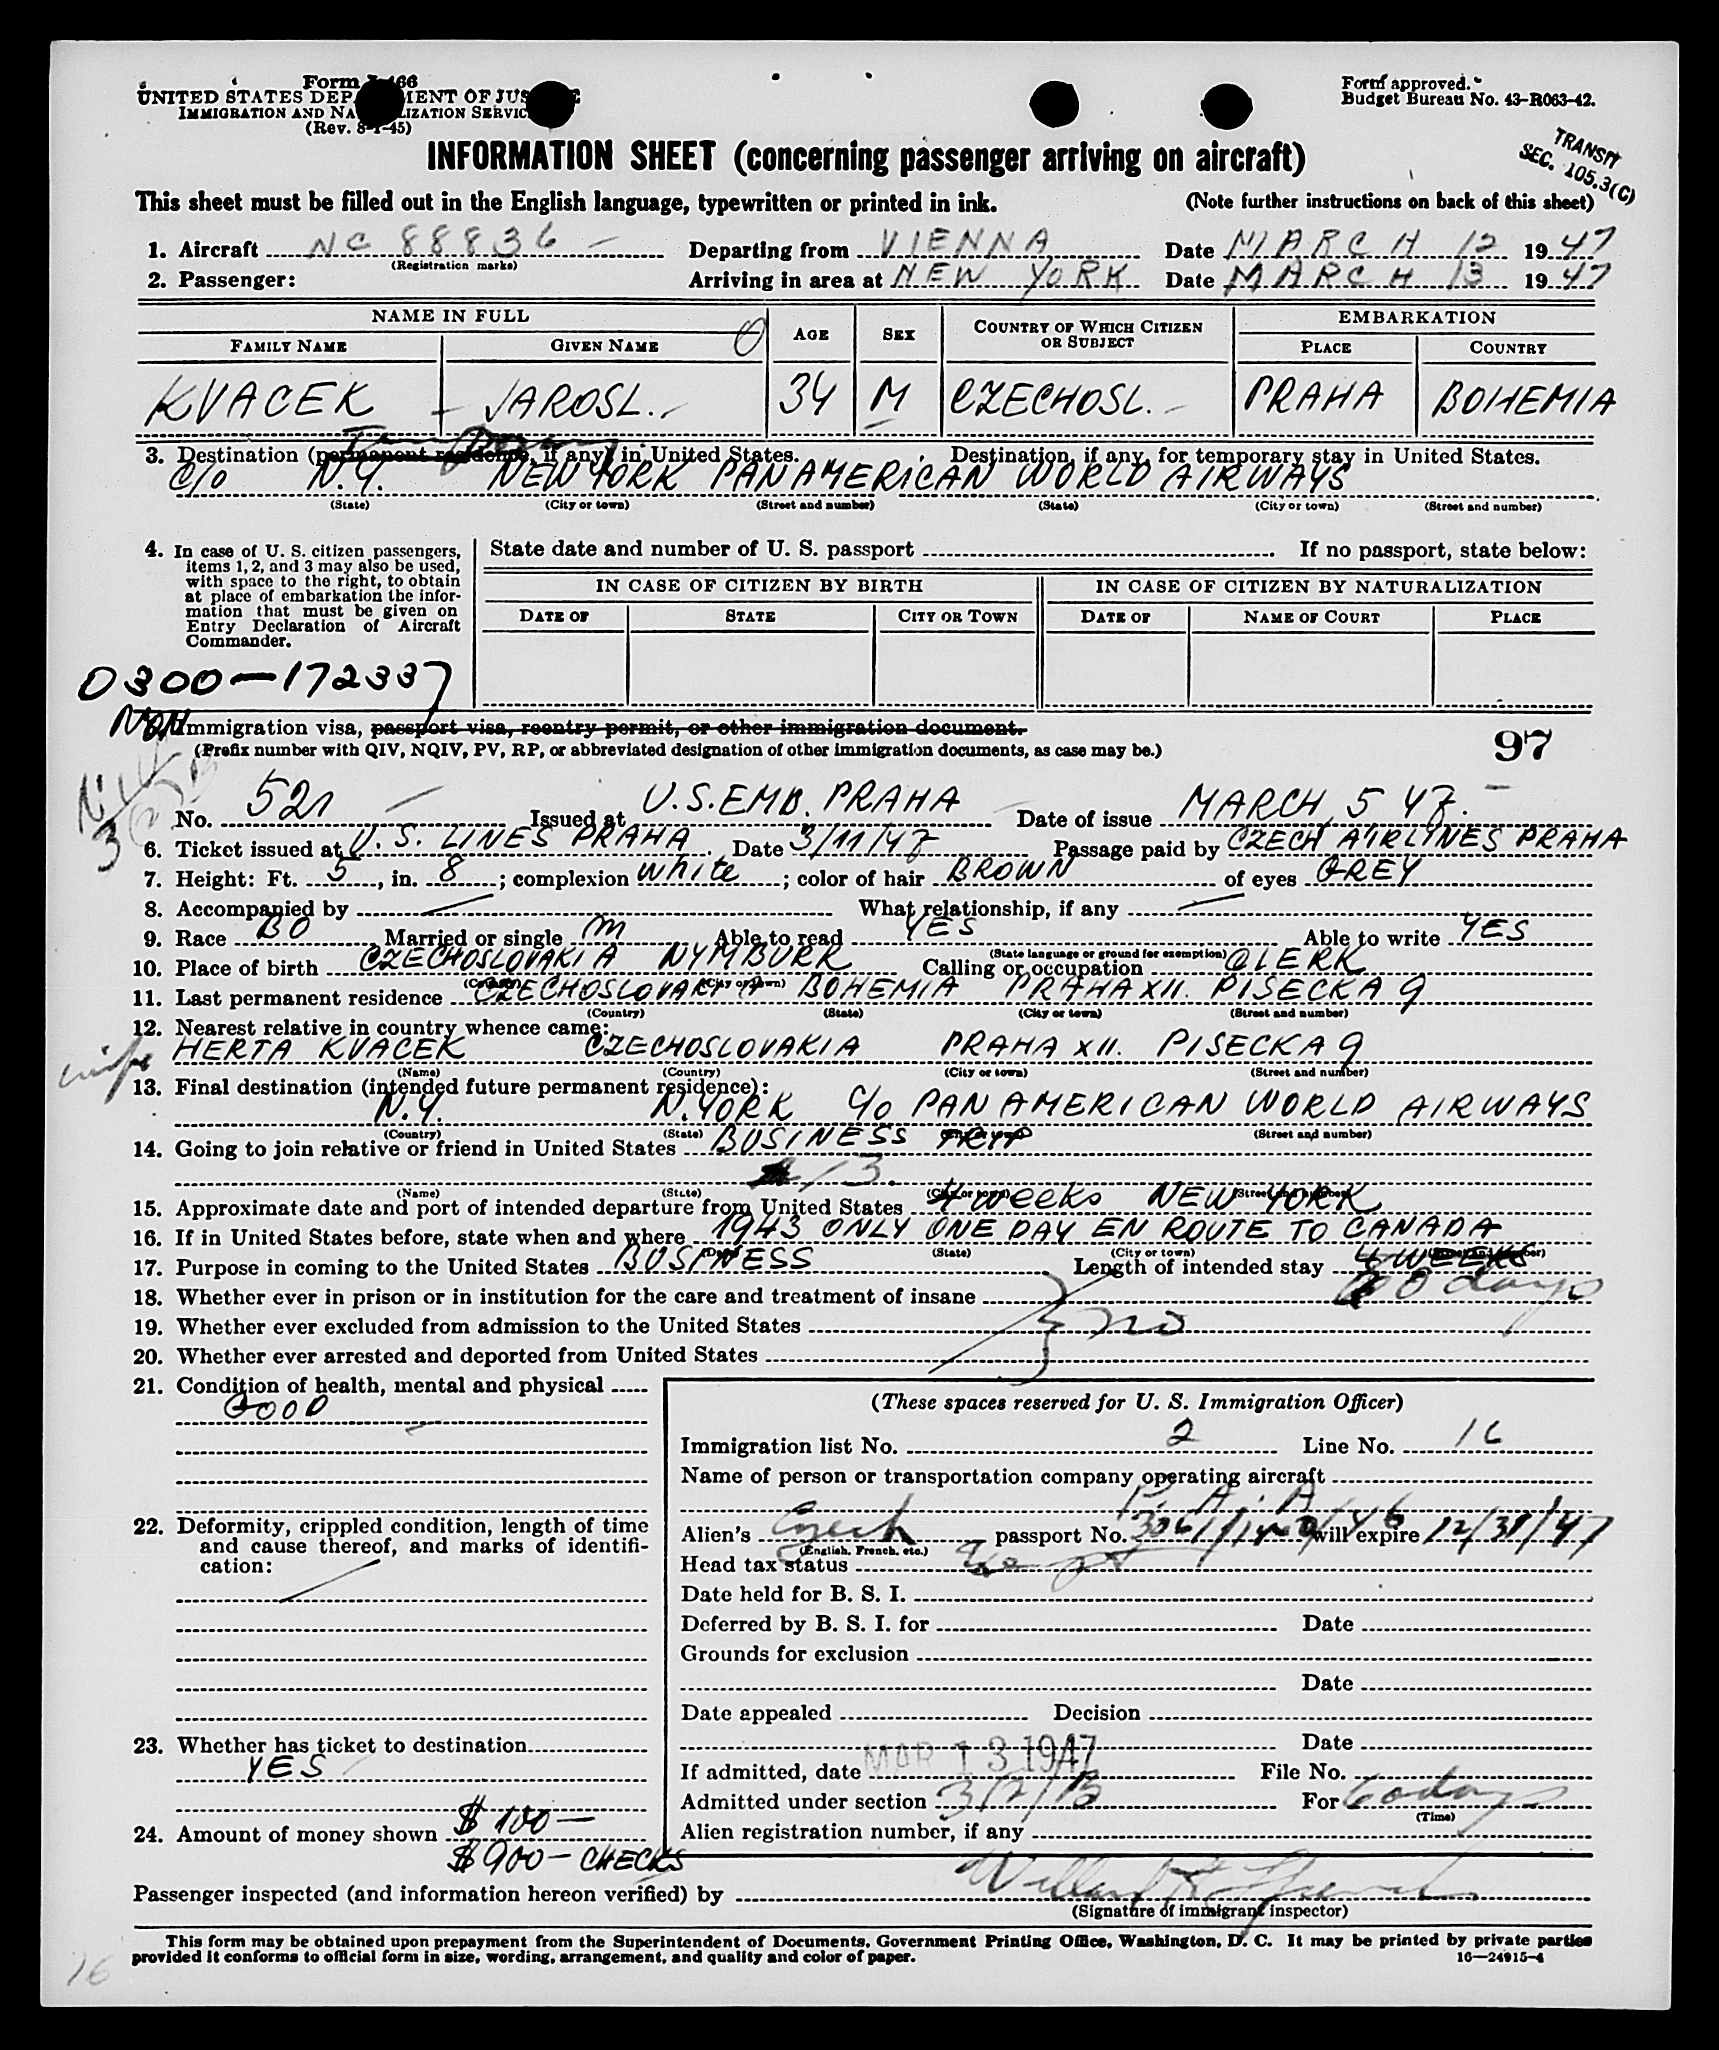 Form I-466
UNITED STATES DEPARTMENT OF JUSTICE
IMMIGRATION AND NATURALIZATION SERVICE
(Rev. 8-1-45)
Form approved.
Budget Bureau No. 43-R063-42.
TRANSIT
SEC. 105.3(C)
INFORMATION SHEET (concerning passenger arriving on aircraft)
This sheet must be filled out in the English language, typewritten or printed in ink. (Note further instructions on back of this sheet)
1. Aircraft NC 88836 Departing from VIENNA Date MARCH 12 1947
(Registration marks)
2. Passenger: Arriving in area at NEW YORK Date MARCH 13 1947
NAME IN FULL AGE SEX COUNTRY OF WHICH CITIZEN OR SUBJECT EMBARKATION
FAMILY NAME GIVEN NAME PLACE COUNTRY
KVACEK JAROSL. 34 M CZECHOSL. PRAHA BOHEMIA
3. Destination (permanent residence, if any) in United States. Destination, if any, for temporary stay in United States.
C/O N.Y. NEW YORK PAN AMERICAN WORLD AIRWAYS
(State) (City or town) (Street and number) (State) (City or town) (Street and number)
4. In case of U. S. citizen passengers,
items 1, 2, and 3 may also be used,
with space to the right, to obtain
at place of embarkation the infor-
mation that must be given on
Entry Declaration of Aircraft
Commander.
State date and number of U. S. passport . If no passport, state below:
IN CASE OF CITIZEN BY BIRTH IN CASE OF CITIZEN BY NATURALIZATION
DATE OF STATE CITY OR TOWN DATE OF NAME OF COURT PLACE
0300-172337
NON Immigration visa, passport visa, reentry permit, or other immigration document.
(Prefix number with QIV, NQIV, PV, RP, or abbreviated designation of other immigration documents, as case may be.)
97
No. 521 Issued at U.S. EMB. PRAHA Date of issue MARCH 5 47.
6. Ticket issued at U.S. LINES PRAHA Date 3/11/47 Passage paid by CZECH AIRLINES PRAHA
7. Height: Ft. 5, in. 8; complexion white; color of hair BROWN of eyes GREY
8. Accompanied by What relationship, if any
9. Race BO Married or single M Able to read YES Able to write YES
(State language or ground for exemption)
10. Place of birth CZECHOSLOVAKIA NYMBURK Calling or occupation CLERK
(Country) (City or town)
11. Last permanent residence CZECHOSLOVAKIA BOHEMIA PRAHA XII. PISECKA 9
(Country) (State) (City or town) (Street and number)
12. Nearest relative in country whence came:
wife HERTA KVACEK CZECHOSLOVAKIA PRAHA XII. PISECKA 9
(Name) (Country) (City or town) (Street and number)
13. Final destination (intended future permanent residence):
N.Y. N.YORK C/O PAN AMERICAN WORLD AIRWAYS
(Country) (State) (City or town) (Street and number)
14. Going to join relative or friend in United States BUSINESS TRIP
(Name) (State) (City or town) (Street and number)
15. Approximate date and port of intended departure from United States 4 weeks NEW YORK
16. If in United States before, state when and where 1943 ONLY ONE DAY EN ROUTE TO CANADA
(Date) (State) (City or town) (Street and number)
17. Purpose in coming to the United States BUSINESS Length of intended stay 4 WEEKS
60 days
18. Whether ever in prison or in institution for the care and treatment of insane
19. Whether ever excluded from admission to the United States no
20. Whether ever arrested and deported from United States
21. Condition of health, mental and physical
GOOD
22. Deformity, crippled condition, length of time
and cause thereof, and marks of identifi-
cation:
23. Whether has ticket to destination
YES
24. Amount of money shown $ 100-
$ 900- CHECKS
(These spaces reserved for U. S. Immigration Officer)
Immigration list No. 2 Line No. 16
Name of person or transportation company operating aircraft
P. A. A
Alien's Czech passport No. will expire 12/31/47
(English, French, etc.)
Head tax status
Date held for B. S. I.
Deferred by B. S. I. for Date
Grounds for exclusion
Date
Date appealed Decision
Date
If admitted, date MAR 13 1947 File No.
Admitted under section 3/2/B For 60 days
(Time)
Alien registration number, if any
Passenger inspected (and information hereon verified) by
(Signature of immigrant inspector)
This form may be obtained upon prepayment from the Superintendent of Documents, Government Printing Office, Washington, D. C. It may be printed by private parties
provided it conforms to official form in size, wording, arrangement, and quality and color of paper. 16—24915-4
16